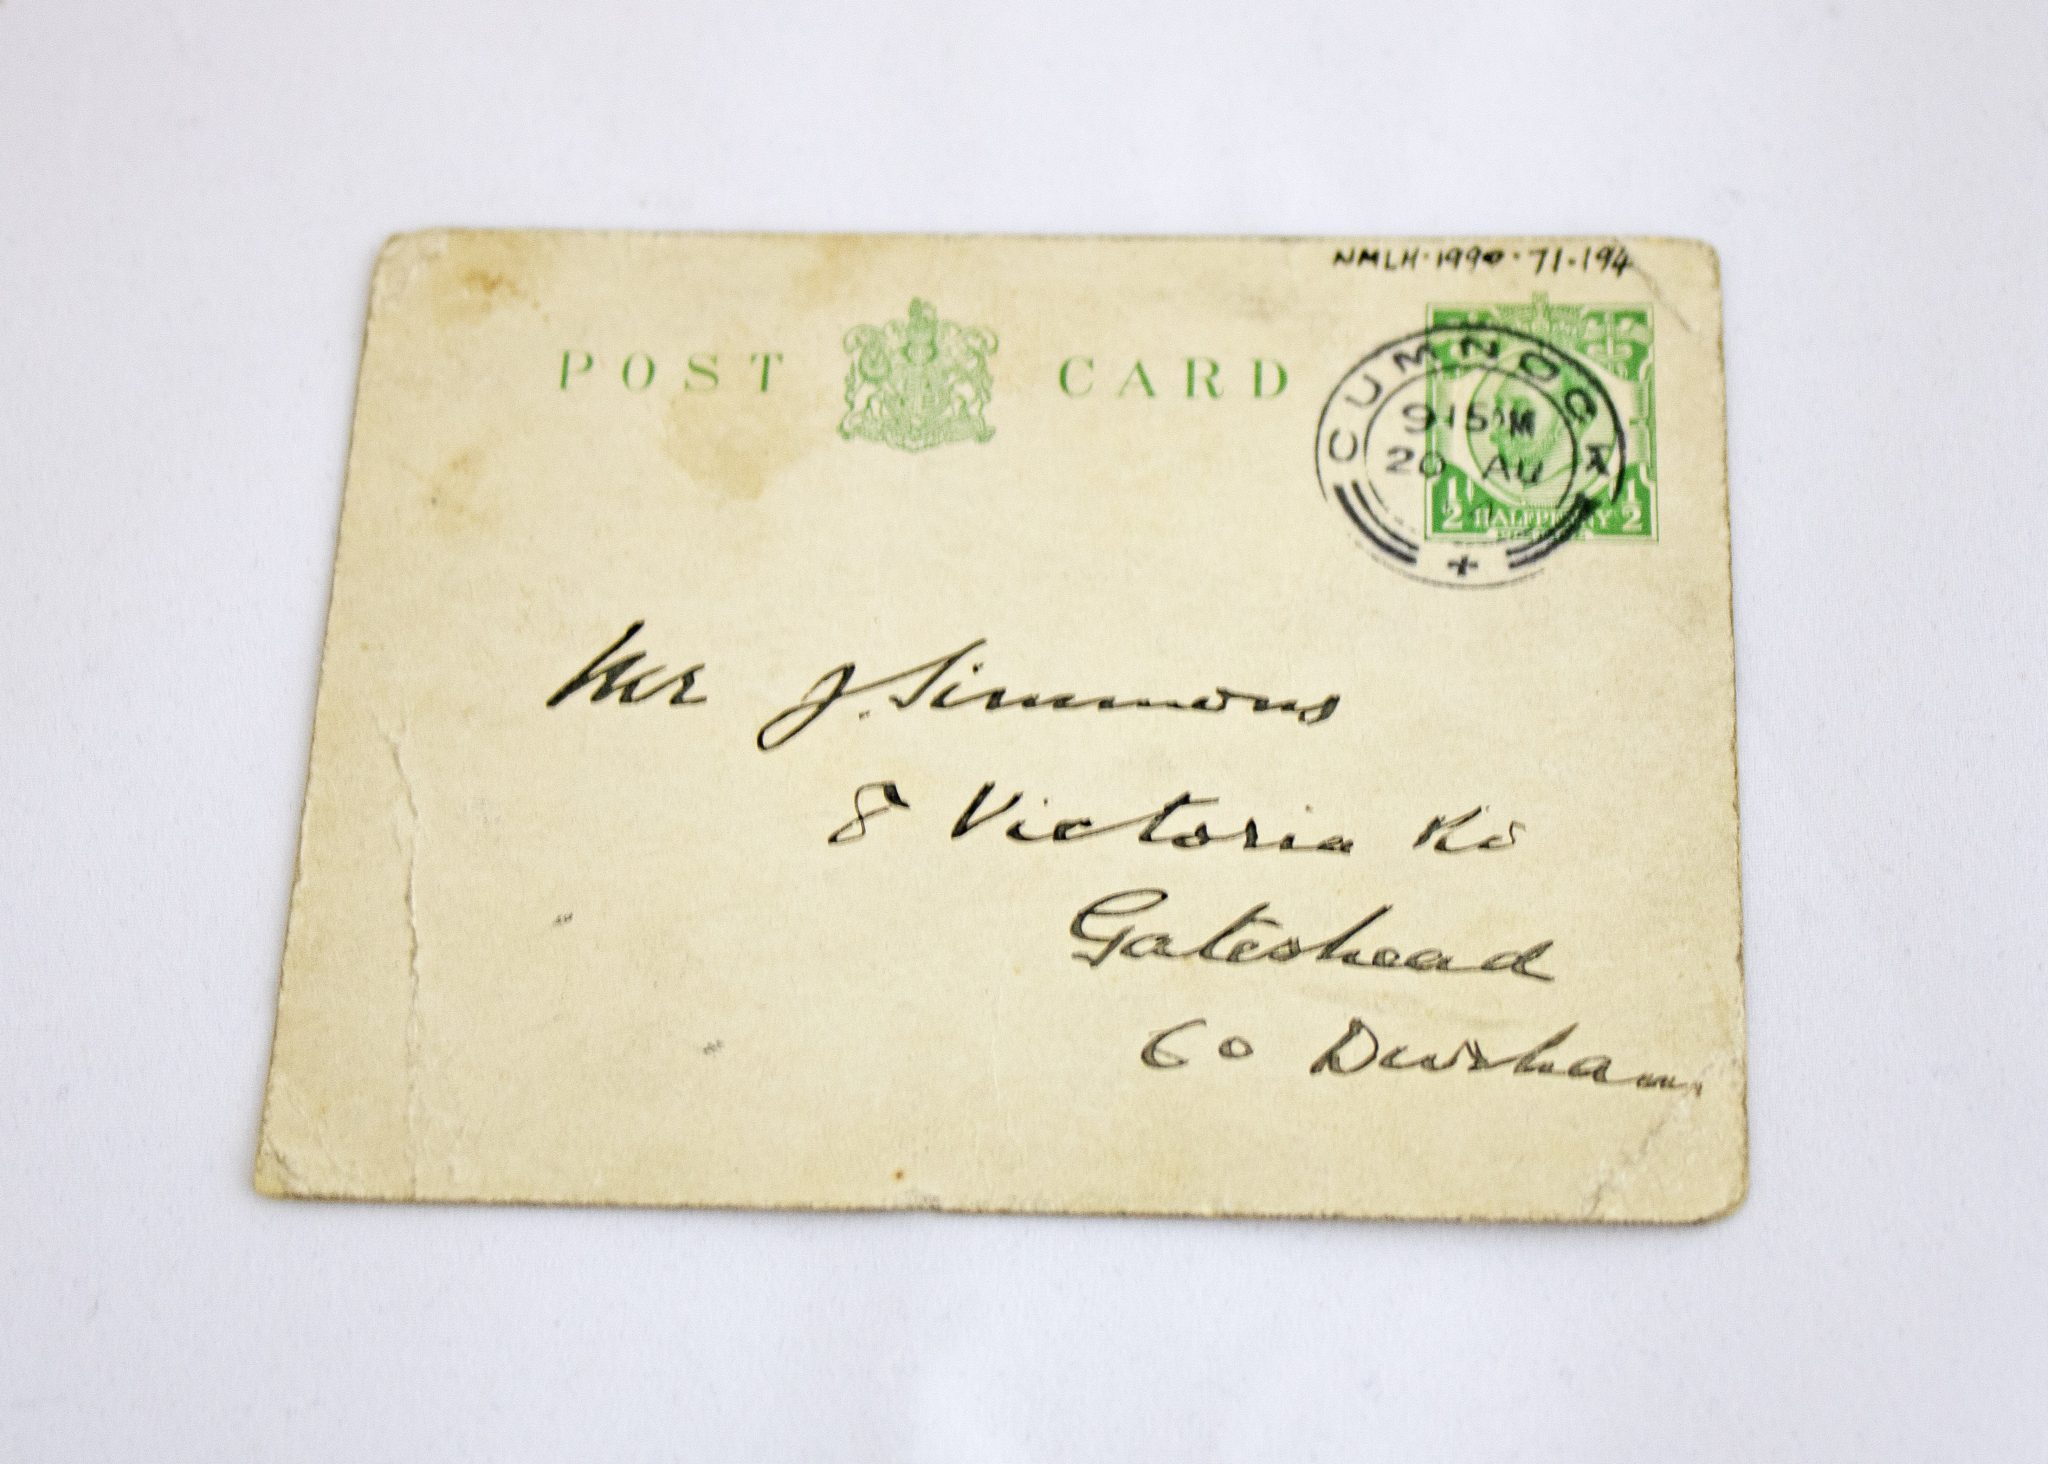 NMLH·1990·71·194
POST CARD
CUMNOCK
9.15 M
20 AU
½ HALFPENNY ½
Mr J. Simmons
8 Victoria Rd
Gateshead
Co Durham.